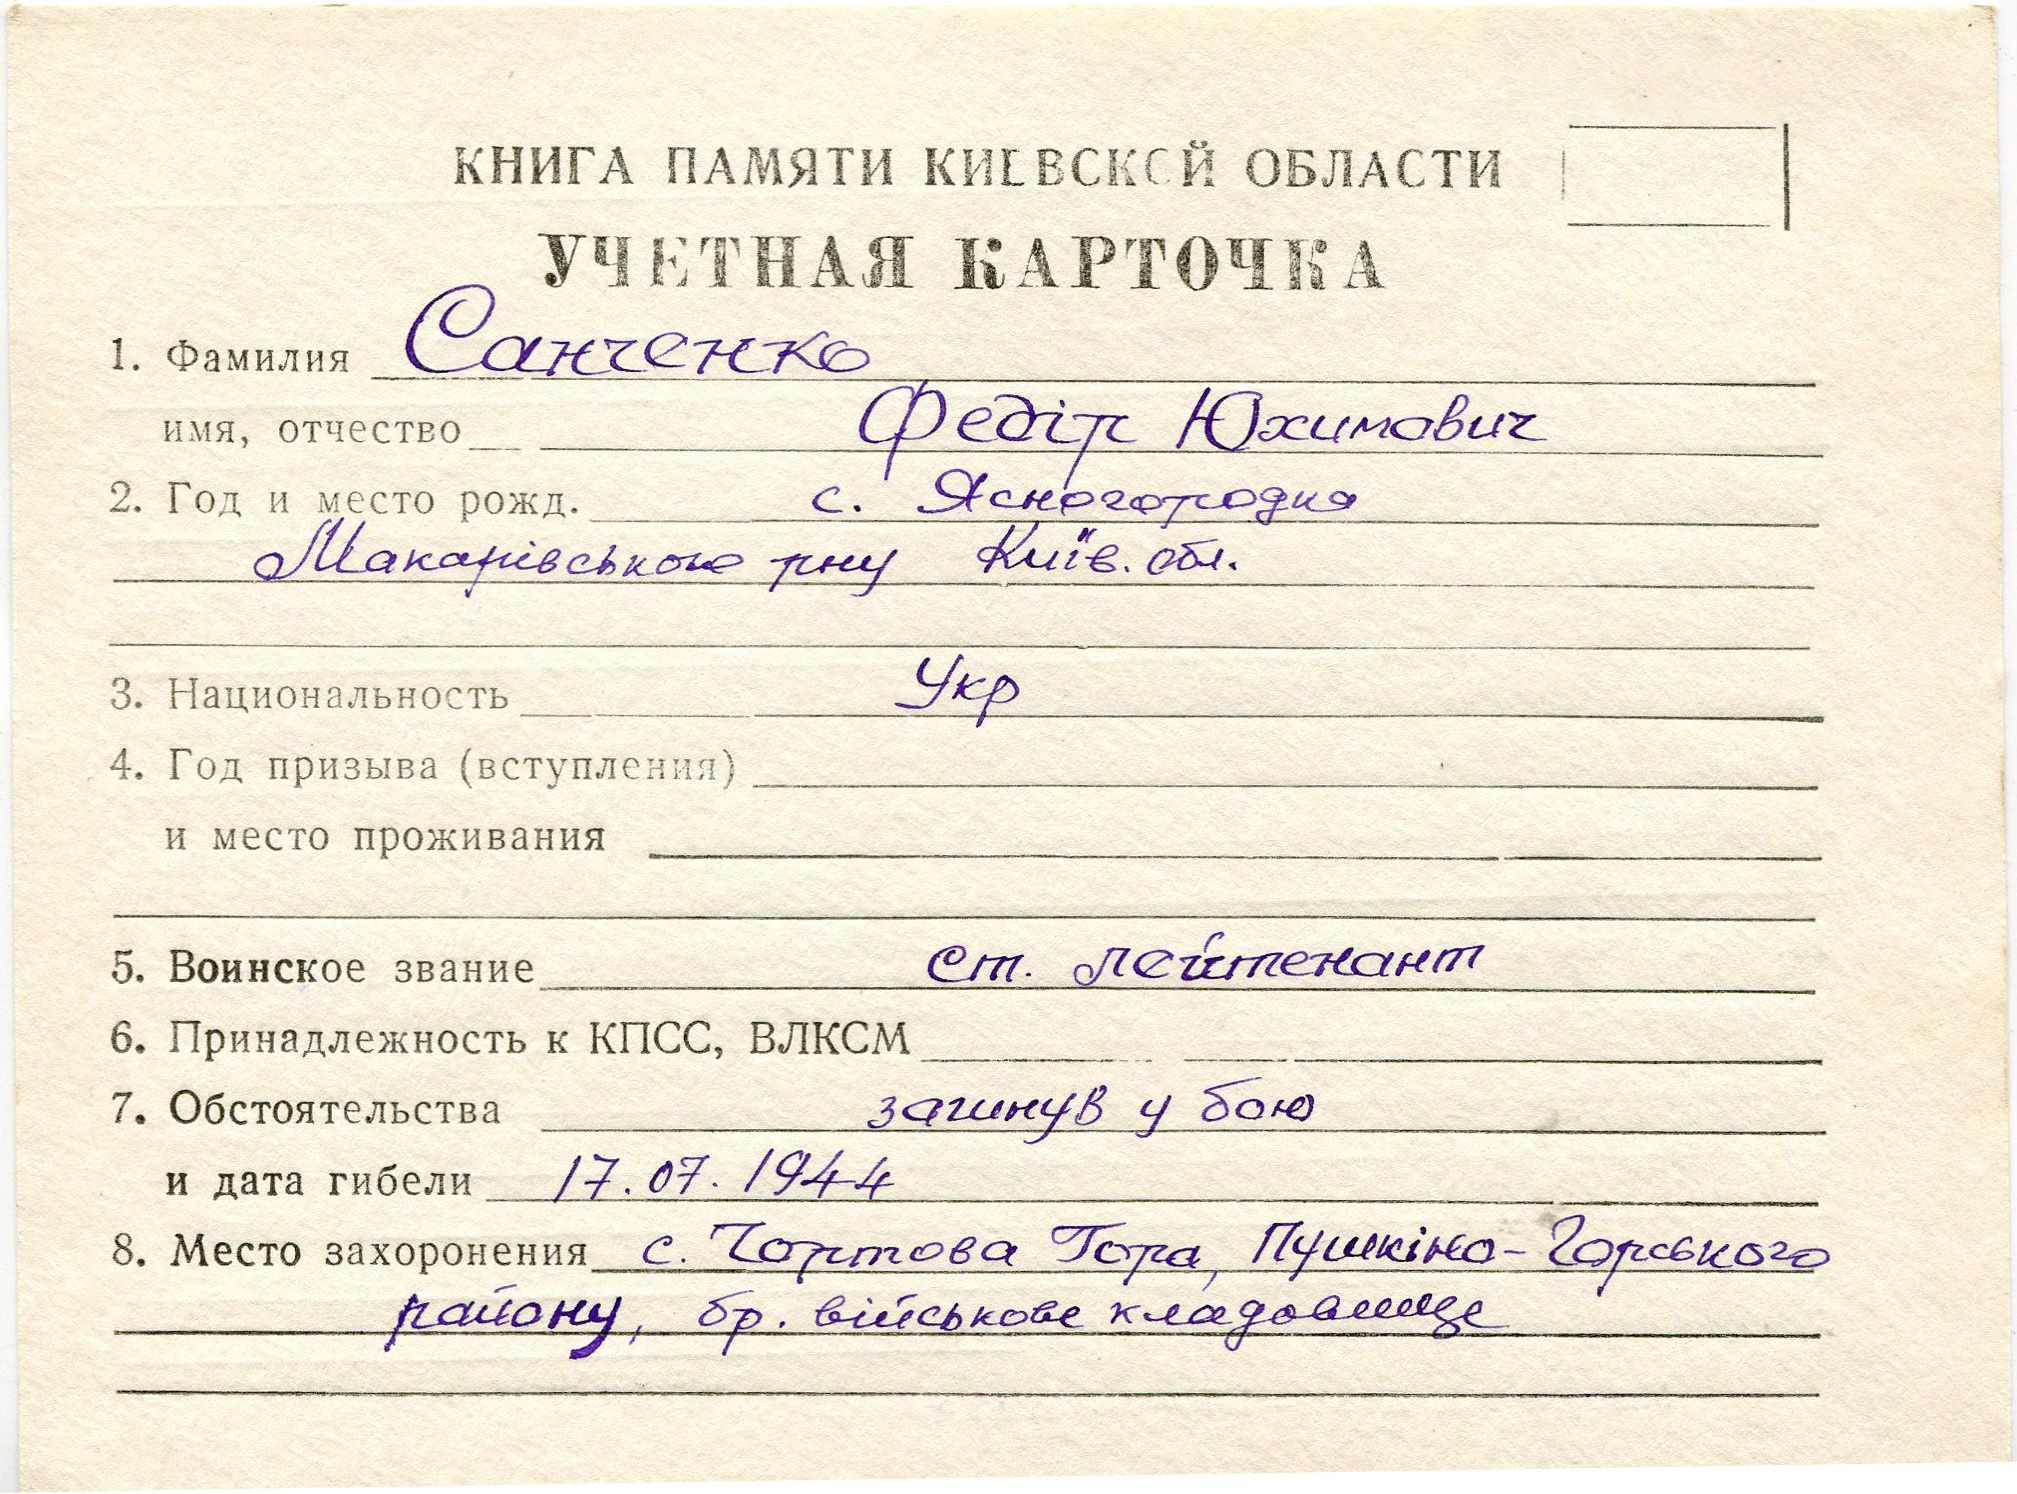 КНИГА ПАМЯТИ КИЕВСКОЙ ОБЛАСТИ
УЧЕТНАЯ КАРТОЧКА
1. Фамилия Санченко
имя, отчество Федір Юхимович
2. Год и место рожд. с. Ясногородка
Макарівського рну Київ. обл.
3. Национальность Укр
4. Год призыва (вступления)
и место проживания
5. Воинское звание ст. лейтенант
6. Принадлежность к КПСС, ВЛКСМ
7. Обстоятельства загинув у бою
и дата гибели 17.07.1944
8. Место захоронения с. Чортова Гора, Пушкіно-Горського
району, бр. військове кладовище